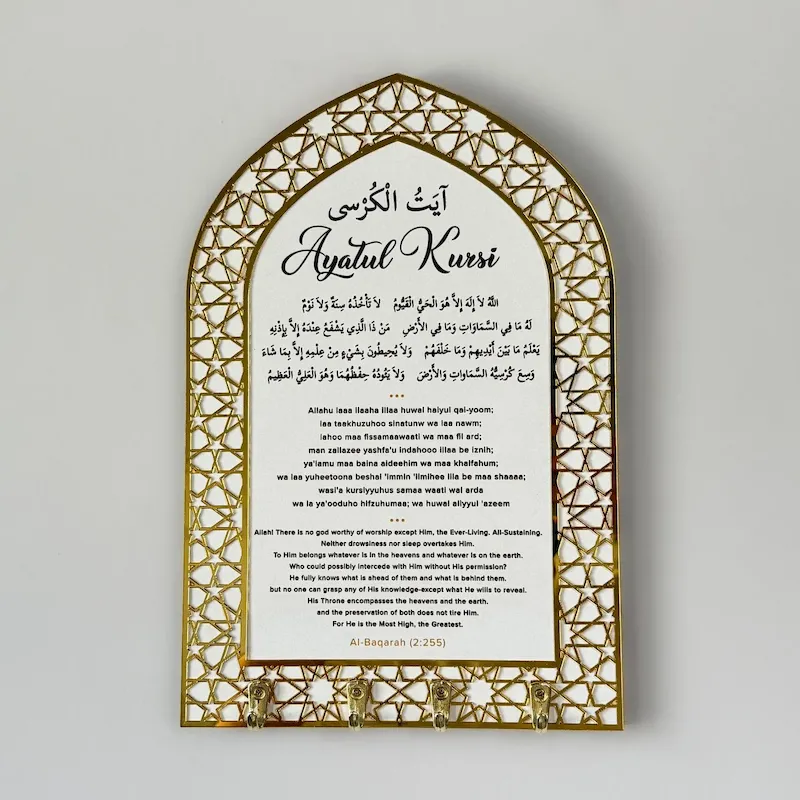 آيَتُ الْكُرْسى
Ayatul Kursi
اللهُ لاَ إِلَهَ إِلاَّ هُوَ الْحَيُّ الْقَيُّومُ لاَ تَأْخُذُهُ سِنَةٌ وَلاَ نَوْمٌ
لَهُ مَا فِي السَّمَاوَاتِ وَمَا فِي الأَرْضِ مَنْ ذَا الَّذِي يَشْفَعُ عِنْدَهُ إِلاَّ بِإِذْنِهِ
يَعْلَمُ مَا بَيْنَ أَيْدِيهِمْ وَمَا خَلْفَهُمْ وَلاَ يُحِيطُونَ بِشَيْءٍ مِنْ عِلْمِهِ إِلاَّ بِمَا شَاءَ
وَسِعَ كُرْسِيُّهُ السَّمَاوَاتِ وَالأَرْضَ وَلاَ يَئُودُهُ حِفْظُهُمَا وَهُوَ الْعَلِيُّ الْعَظِيمُ
Allahu laaa ilaaha illaa huwal haiyul qai-yoom;
laa taakhuzuhoo sinatunw wa laa nawm;
lahoo maa fissamaawaati wa maa fil ard;
man zallazee yashfa'u indahooo illaa be iznih;
ya'lamu maa baina aideehim wa maa khalfahum;
wa laa yuheetoona beshai 'immin 'ilmihee illa be maa shaaaa;
wasi'a kursiyyuhus samaa waati wal arda
wa la ya'ooduho hifzuhumaa; wa huwal aliyyul 'azeem
Allah! There is no god worthy of worship except Him, the Ever-Living. All-Sustaining.
Neither drowsiness nor sleep overtakes Him.
To Him belongs whatever is in the heavens and whatever is on the earth.
Who could possibly intercede with Him without His permission?
He fully knows what is ahead of them and what is behind them.
but no one can grasp any of His knowledge-except what He wills to reveal.
His Throne encompasses the heavens and the earth.
and the preservation of both does not tire Him.
For He is the Most High, the Greatest.
Al-Baqarah (2:255)